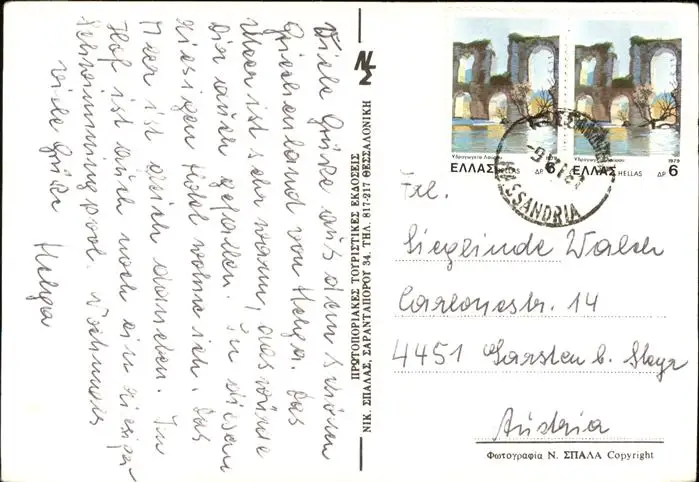 Viele Grüße aus dem schönen
Griechenland von Helga. Das
Meer ist sehr warm, das würde
Dir auch gefallen. In diesem
riesigen Hotel wohne ich. Das
Meer ist gleich daneben. Im
Hof ist auch noch ein riesiger
Schwimmingpool. Nochmals
viele Grüße Helga
ΝΣ
ΠΡΩΤΟΠΟΡΙΑΚΕΣ ΤΟΥΡΙΣΤΙΚΕΣ ΕΚΔΟΣΕΙΣ
ΝΙΚ. ΣΠΑΛΑΣ, ΣΑΡΑΝΤΑΠΟΡΟΥ 34, ΤΗΛ. 817-217 ΘΕΣΣΑΛΟΝΙΚΗ
Υδραγωγείο Λούρου
ΕΛΛΑΣ HELLAS ΔΡ 6
Υδραγωγείο Λούρου 1979
ΕΛΛΑΣ HELLAS ΔΡ 6
Frl.
Sieglinde Walch
Carlonestr. 14
4451 Garsten b. Steyr
Austria
Φωτογραφία Ν. ΣΠΑΛΑ Copyright